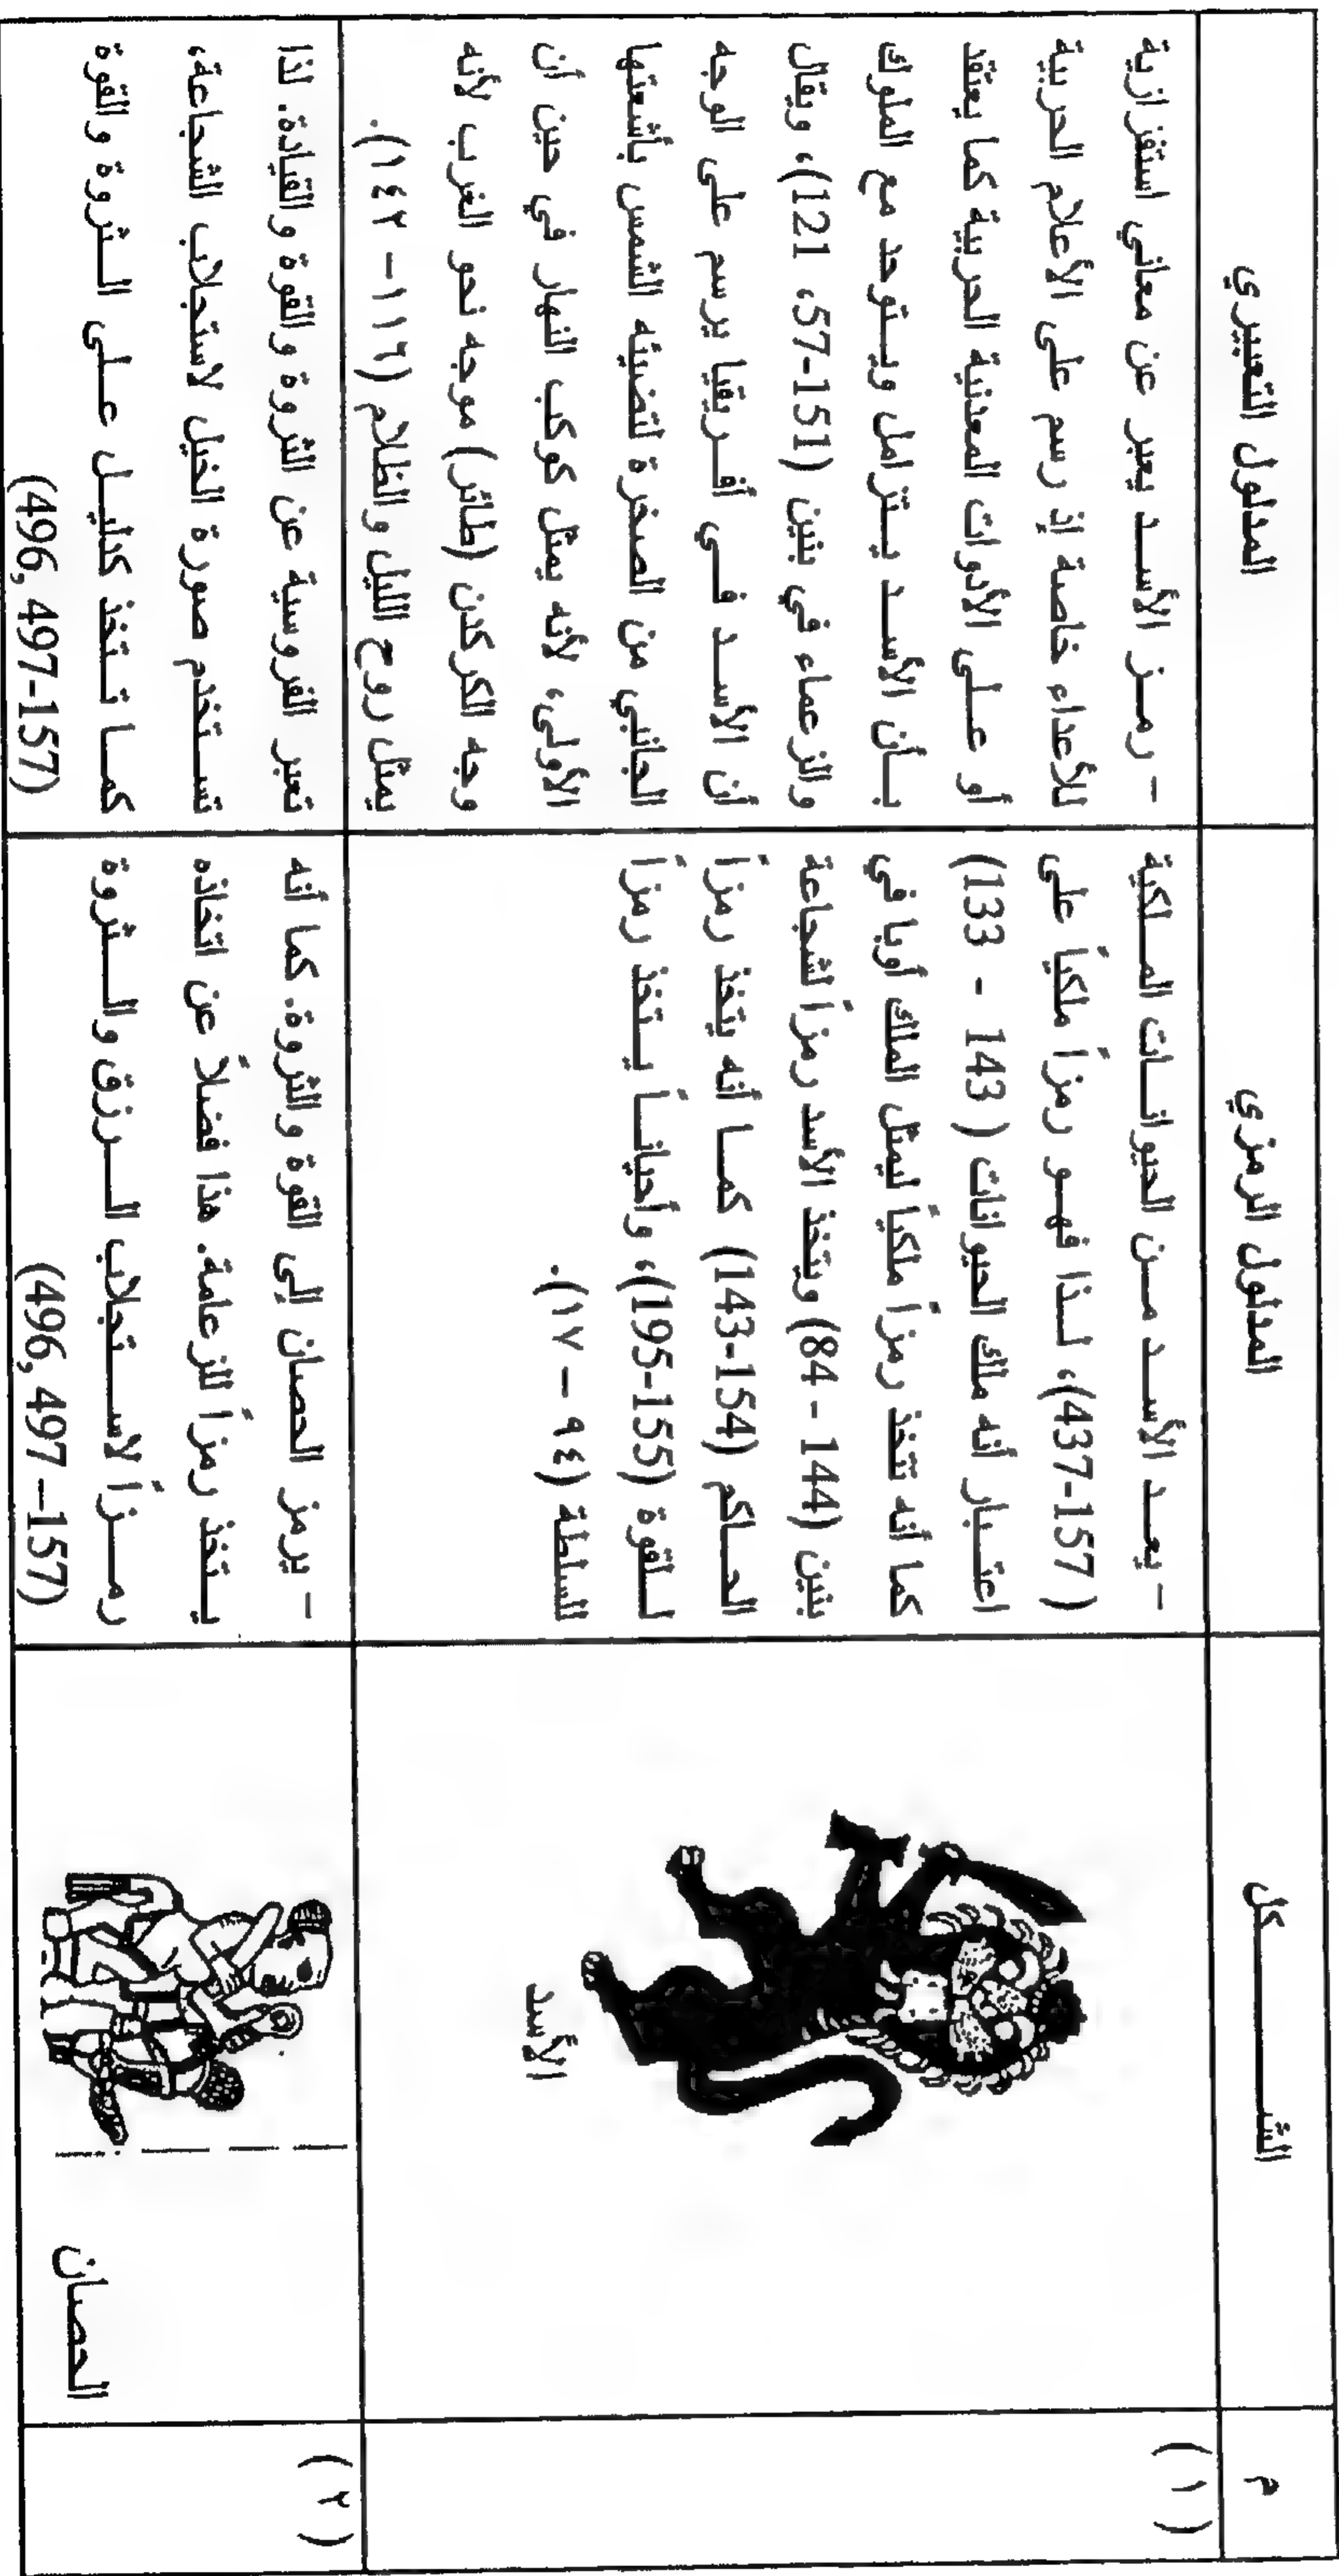 م
الشـــــكل
المدلول الرمزي
المدلول التعبيري
(١)
الأسد
- يعـد الأسـد مـن الحيوانـات المـلكية
(157-437)، لـذا فهـو رمزاً ملكياً على
اعتـبار أنه ملك الحيوانات (143 - 133)
كما أنه تتخذ رمزاً ملكياً ليمثل الملك أوبا في
بنين (144 - 84) ويتخذ الأسد رمزاً لشجاعة
الحـاكم (154-143) كمـا أنه يتخذ رمزاً
لـلقوة (155-195)، وأحيانـاً يـتخذ رمزاً
للسلطة (٩٤ – ١٧).
- رمـز الأسـد يعبر عن معاني استفزازية
للأعداء خاصة إذ رسم على الأعلام الحربية
أو عـلى الأدوات المعدنية الحربية كما يعتقد
بـأن الأسـد يـتزامل ويـتوحد مع الملوك
والزعماء في بنين (151-57، 121)، ويقال
أن الأسـد فـي أفـريقيا يرسم على الوجه
الجانبي من الصخرة لتضيئه الشمس بأشعتها
الأولى، لأنه يمثل كوكب النهار في حين أن
وجه الكركدن (طائر) موجه نحو الغرب لأنه
يمثل روح الليل والظلام (١١٦– ١٤٢).
(٢)
الحصان
- يرمز الحصان إلى القوة والثروة. كما أنه
يـتخذ رمزاً للزعامة. هذا فضلاً عن اتخاذه
رمـزاً لاسـتجلاب الـرزق والـثروة
(157– 497 ,496)
تعبر الفروسية عن الثروة والقوة والقيادة. لذا
تسـتخدم صورة الخيل لاستجلاب الشجاعة،
كمـا تـتخذ كدليـل عـلى الـثروة والقوة
(157-497 ,496)